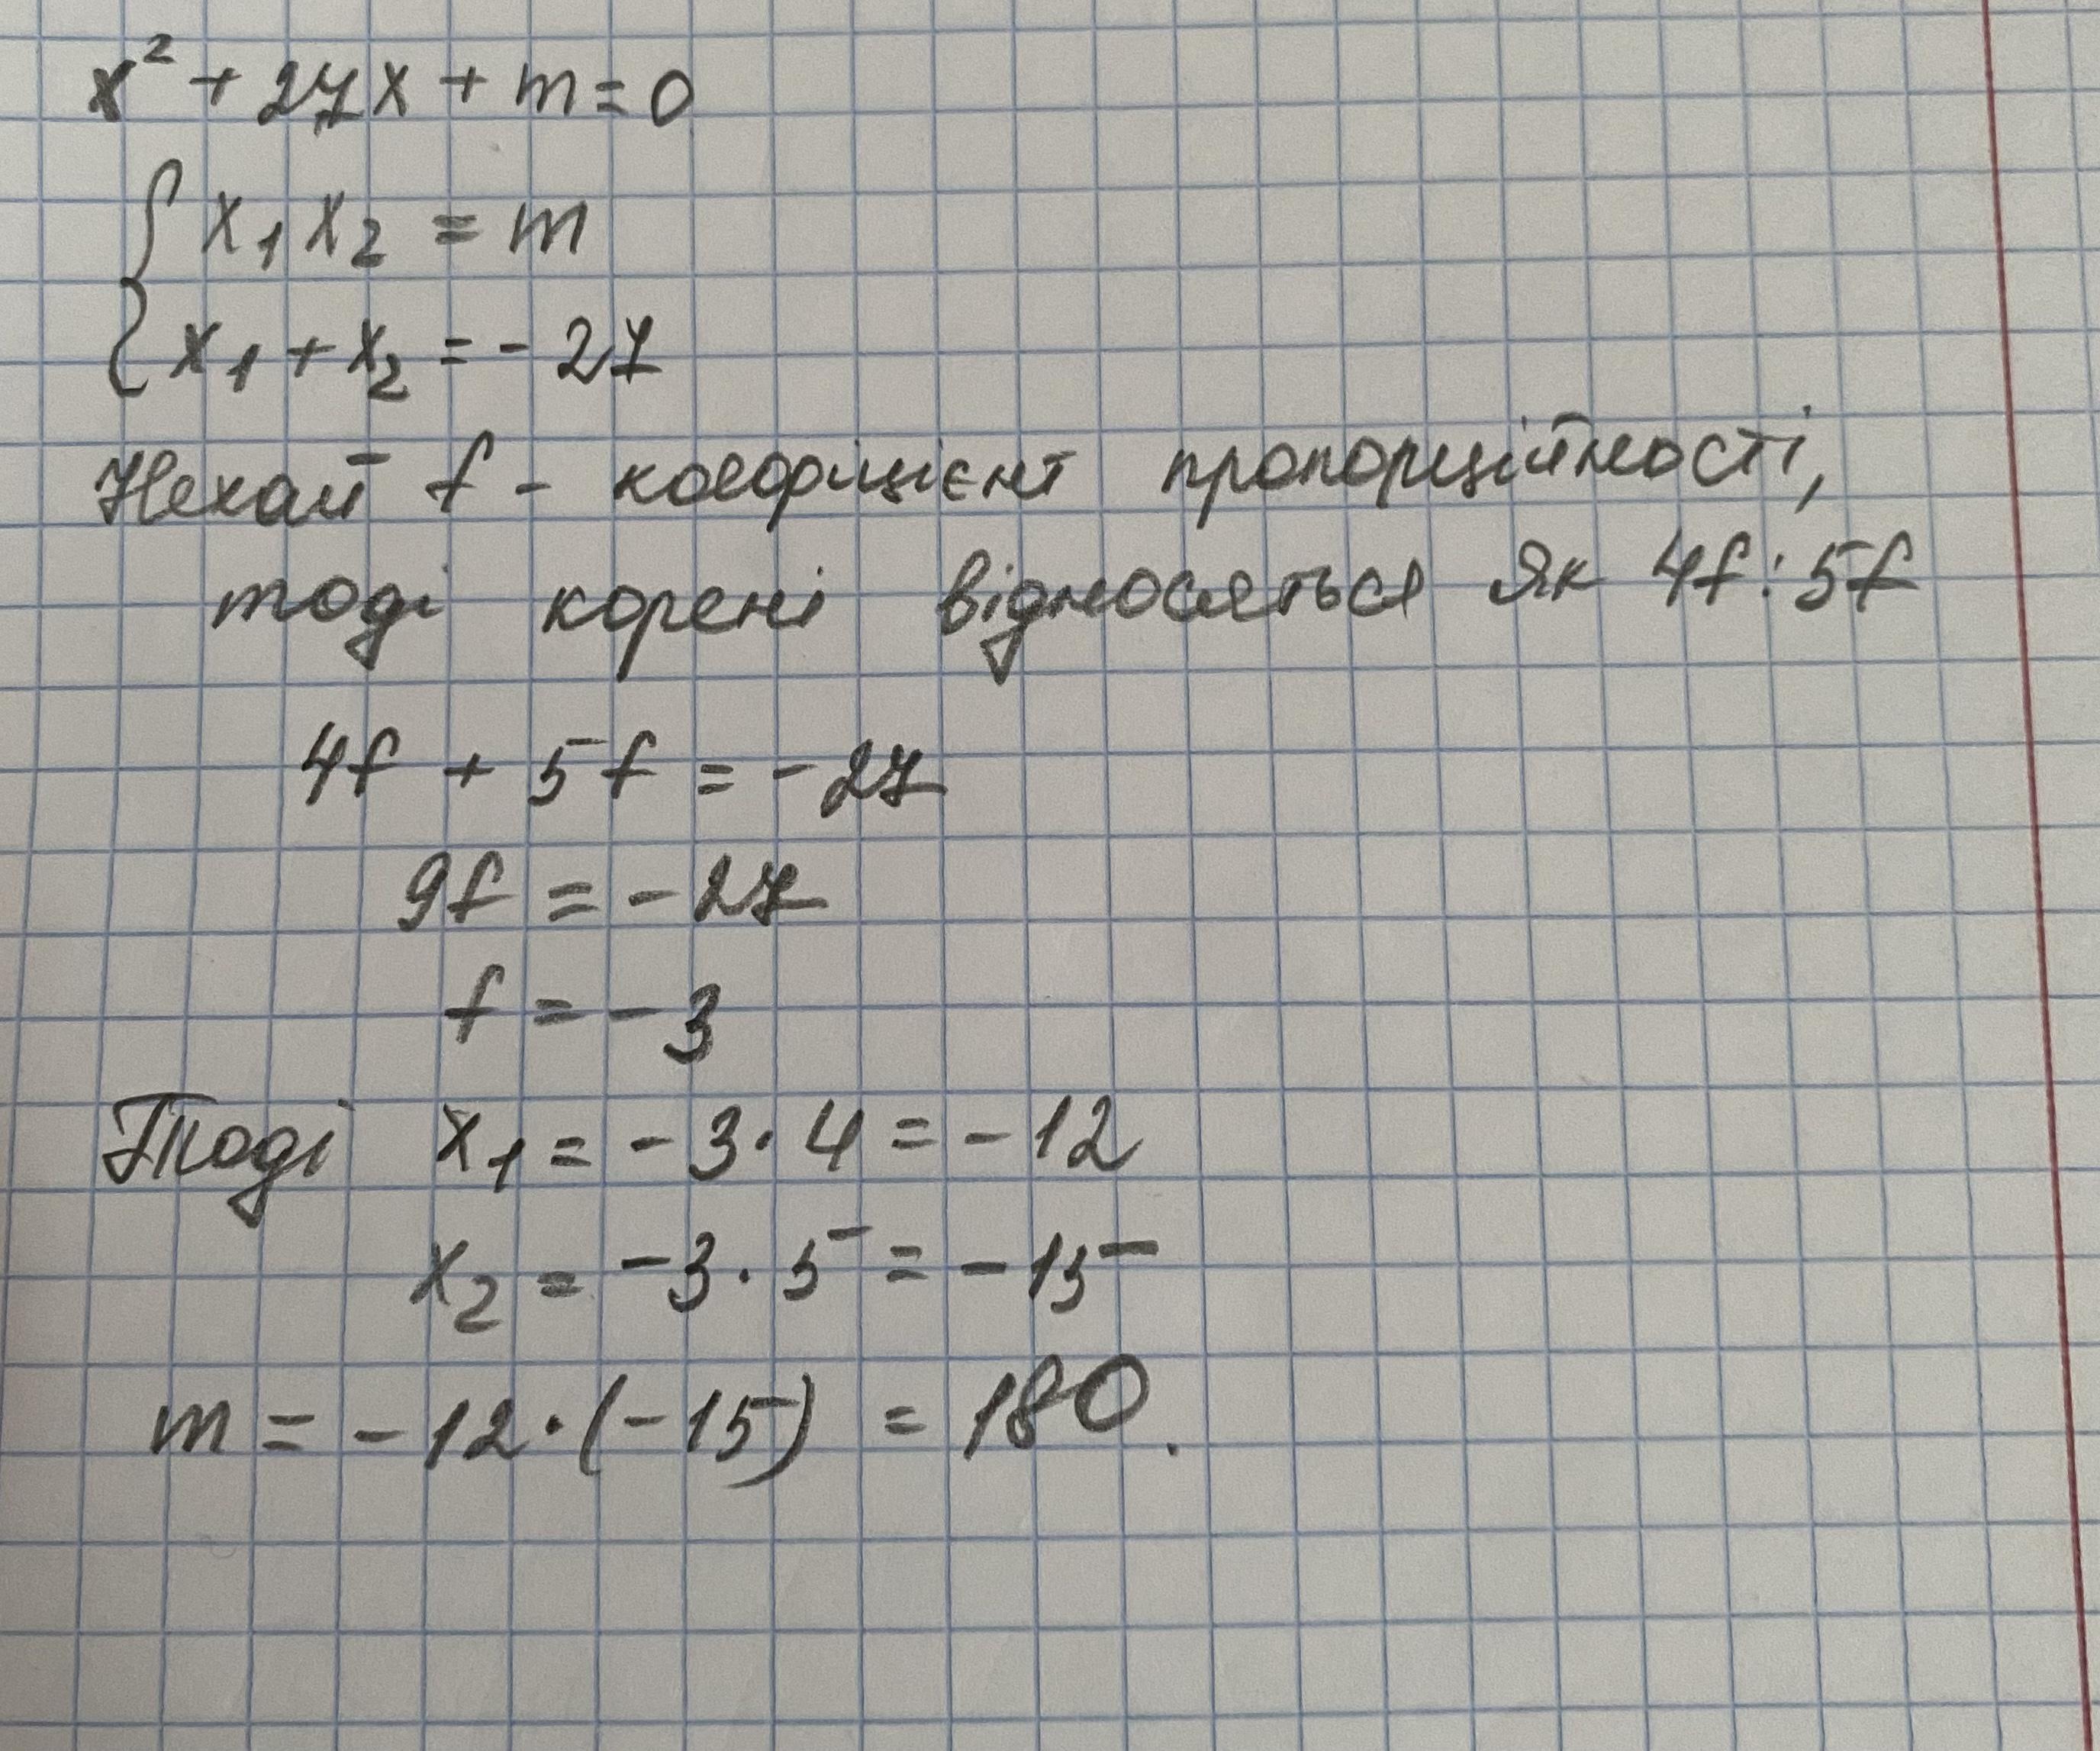 x² + 27x + m = 0
{ x₁ x₂ = m
x₁ + x₂ = - 27
Нехай f - коефіцієнт пропорційності,
тоді корені відносяться як 4f : 5f
4f + 5f = - 27
9f = - 27
f = - 3
Тоді x₁ = - 3 · 4 = - 12
x₂ = - 3 · 5 = - 15
m = - 12 · (- 15) = 180.